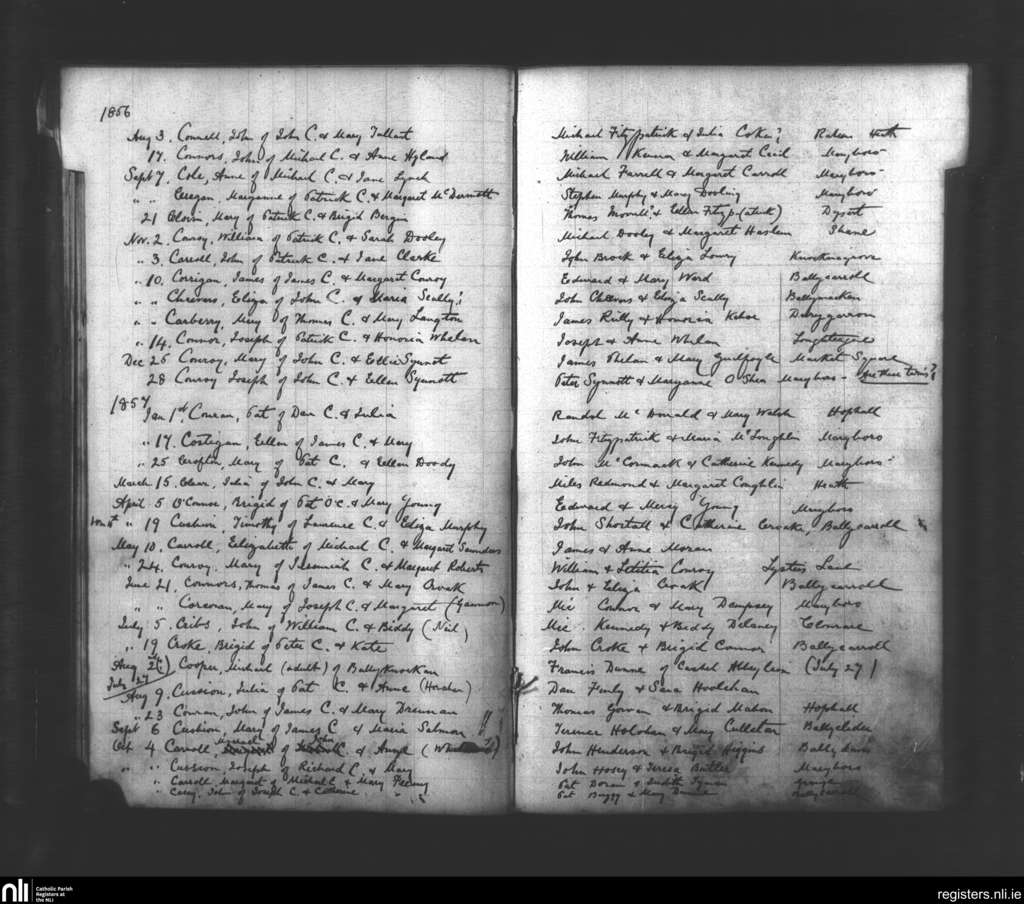 1856
Aug 3. Connell, John of John C. & Mary Tallant Michael Fitzpatrick & Julia Coke? Raheen Heath
17. Connors, John of Michael C. & Anne Hyland William Kenna & Margaret Cecil Maryboro
Sept 7. Cole, Anne of Michael C. & Jane Lynch Michael Farrell & Margaret Carroll Maryboro
" " Creegan, Maryanne of Patrick C. & Margaret McDermott Stephen Murphy & Mary Dooling Maryboro
21 Mary of Patrick C. & Brigid Bergin Thomas & Ellen Fitzp(atrick) Dysart
Nov. 2. Conroy, William of Patrick C. & Sarah Dooley Michael Dooley & Margaret Haslem Shane
" 3. Carroll, John of Patrick C. & Jane Clarke John Brock & Eliza Lowry Knocknagrove
" 10. Corrigan, James of James C. & Margaret Conroy Edward & Mary Ward Ballycarroll
" " Cheevers, Eliza of John C. & Maria Scully? John Cheevers & Eliza Scully Ballymacken
" " Carberry, Mary of Thomas C. & Mary Langton James Reilly & Honoria Kehoe Derrygarron
" 14. Connor, Joseph of Patrick C. & Honoria Whelan Joseph & Anne Whelan Loughteague
Dec 26 Conroy, Mary of John C. & Ellie Synnot James Phelan & Mary Guilfoyle Market Square
28 Conroy Joseph of John C. & Ellen Synnott Peter Synnott & Maryanne O'Shea Maryboro - Are these twins?
1857
Jan 1st Conran, Pat of Dan C. & Julia Randol McDonald & Mary Walsh Hophall
" 17. Costigan, Ellen of James C. & Mary John Fitzpatrick & Maria McLoughlin Maryboro
" 25 Crofton, Mary of Pat C. & Ellen Doody John McCormack & Catherine Kennedy Maryboro
March 15. Julia of John C. & Mary Miles Redmond & Margaret Coughlin Heath
April 5 O'Connor, Brigid of Pat O'C. & Mary Young Edward & Mary Young Maryboro
" 19 Cushion Timothy of Laurence C. & Eliza Murphy John Shortall & Catherine Croake, Ballycarroll
May 10. Carroll, Elizabeth of Michael C. & Margaret Saunders James & Anne Moran
" 24. Conroy, Mary of Jeremiah C. & Margaret Roberts William & Letitia Conroy
June 21, Connors, Thomas of James C. & Mary Croak John & Eliza Croak Ballycarroll
" " Corcoran, Mary of Joseph C. & Margaret (Gannon) Mic Connor & Mary Dempsey Maryboro
July 5. Cribs, John of William C. & Biddy (Neil) Mic. Kennedy & Biddy Delaney
" 19 Croke, Brigid of Peter C. & Kate John Croke & Brigid Connor Ballycarroll
Aug 2() Cooper, Michael (adult) of Ballyknockan Francis Dunne of Castel Abbyleix (July 27)
July 27
Aug 9. Cussion, Julia of Pat C. & Anne Dan Fenly & Sara Hoolehan
" 23 Conran, John of James C. & Mary Drennan Thomas Gowan & Brigid Mahon Hophall
Sept 6 Cushion, Mary of James C & Maria Salmon Terence Holohan & Mary Culleton Ballyclider
Oct 4 Carroll, Michael of John C. & Anne John Henderson & Brigid Higgins
" " Cussion, Joseph of Richard C. & Mary John Hosey & Teresa Butler Maryboro
" Carroll, Margaret of Michael C. & Mary Fleming Pat Doran & Judith
" Casey, John of Joseph C. & Catherine " " Pat Buggy & Mary Ballycarroll
nli
Catholic Parish
Registers at
the NLI
registers.nli.ie